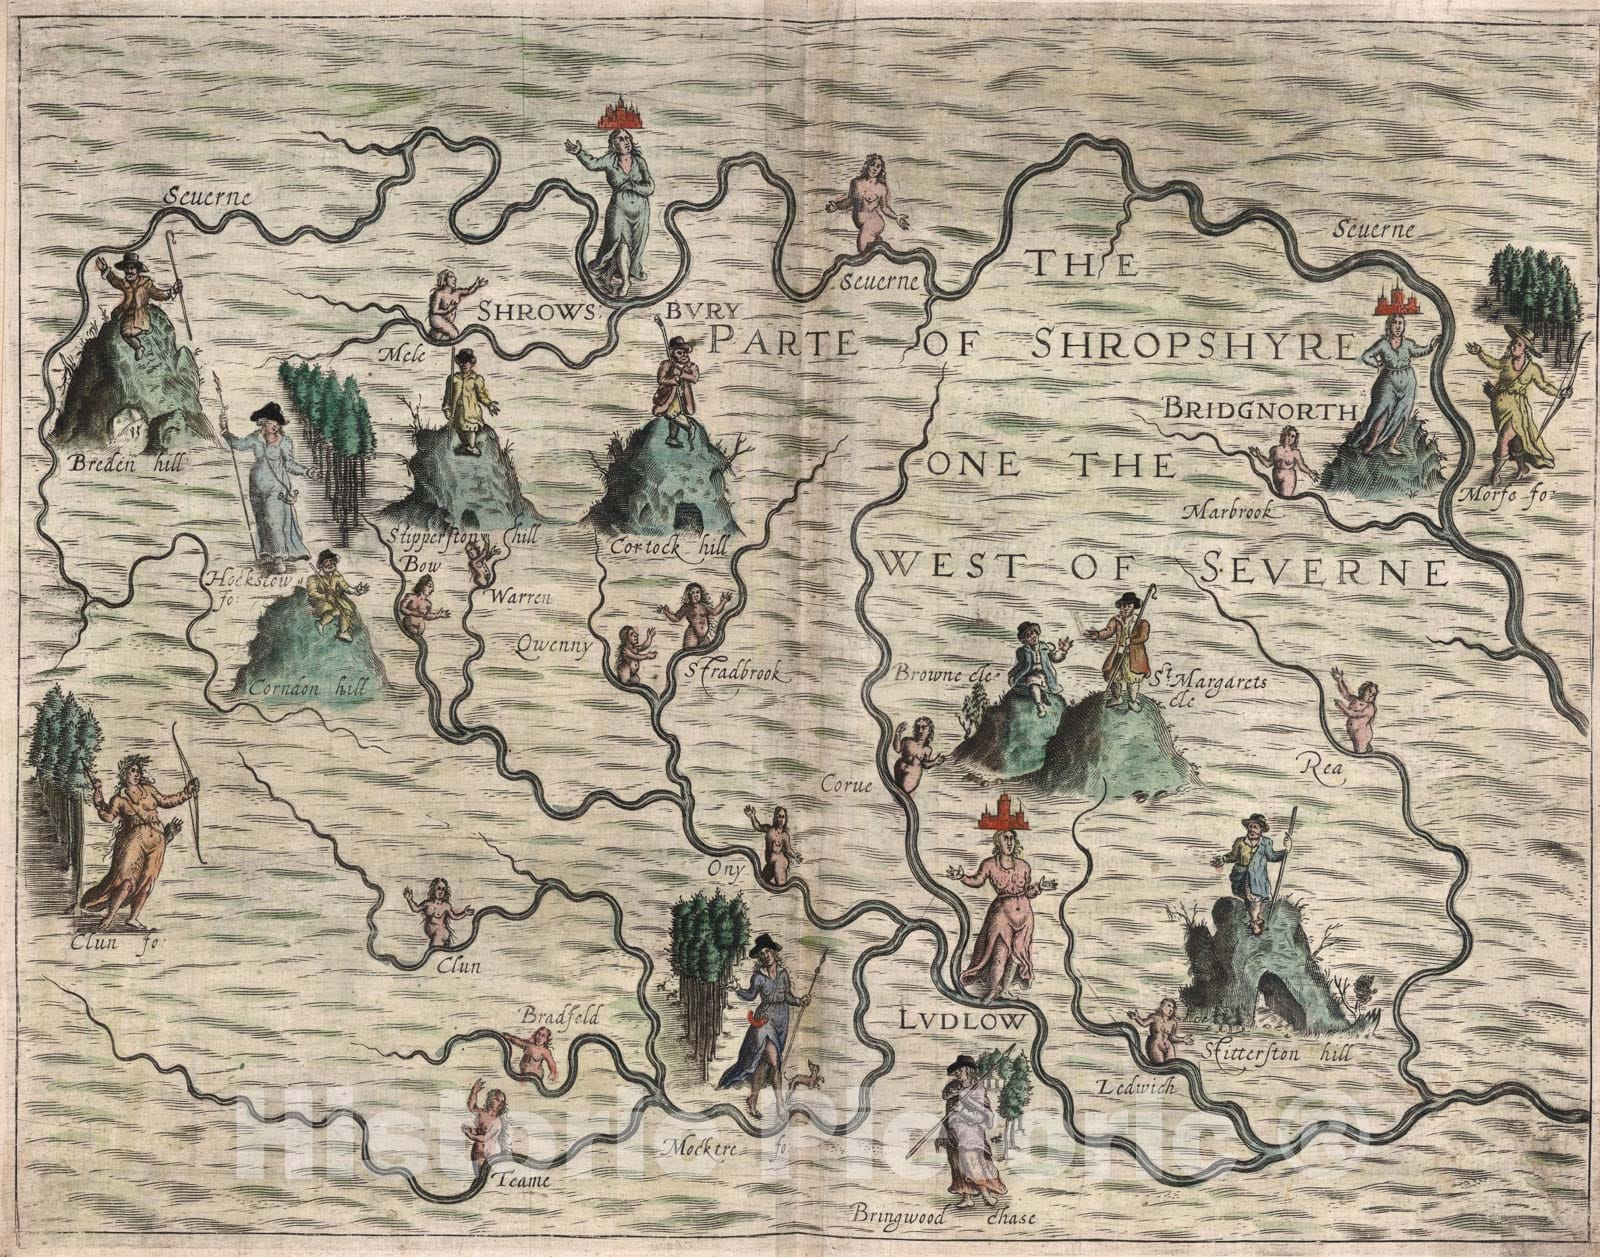 Seuerne
Seuerne
Seuerne
THE
SHROWSBVRY
PARTE OF SHROPSHYRE
Mele
BRIDGNORTH
Breden hill
ONE THE
Marbrook
Morfe fo:
Stipperston hill
Cortock hill
WEST OF SEVERNE
Hockstow
fo:
Bow
Warren
Qwenny
Stradbrook
Corndon hill
Browne cle
St Margarets
cle
Rea
Corue
Ony
Clun fo:
Clun
Bradfeld
LVDLOW
Stitterston hill
Ledwich
Mocktre fo:
Teame
Bringwood chase
Historic Pictoric ©